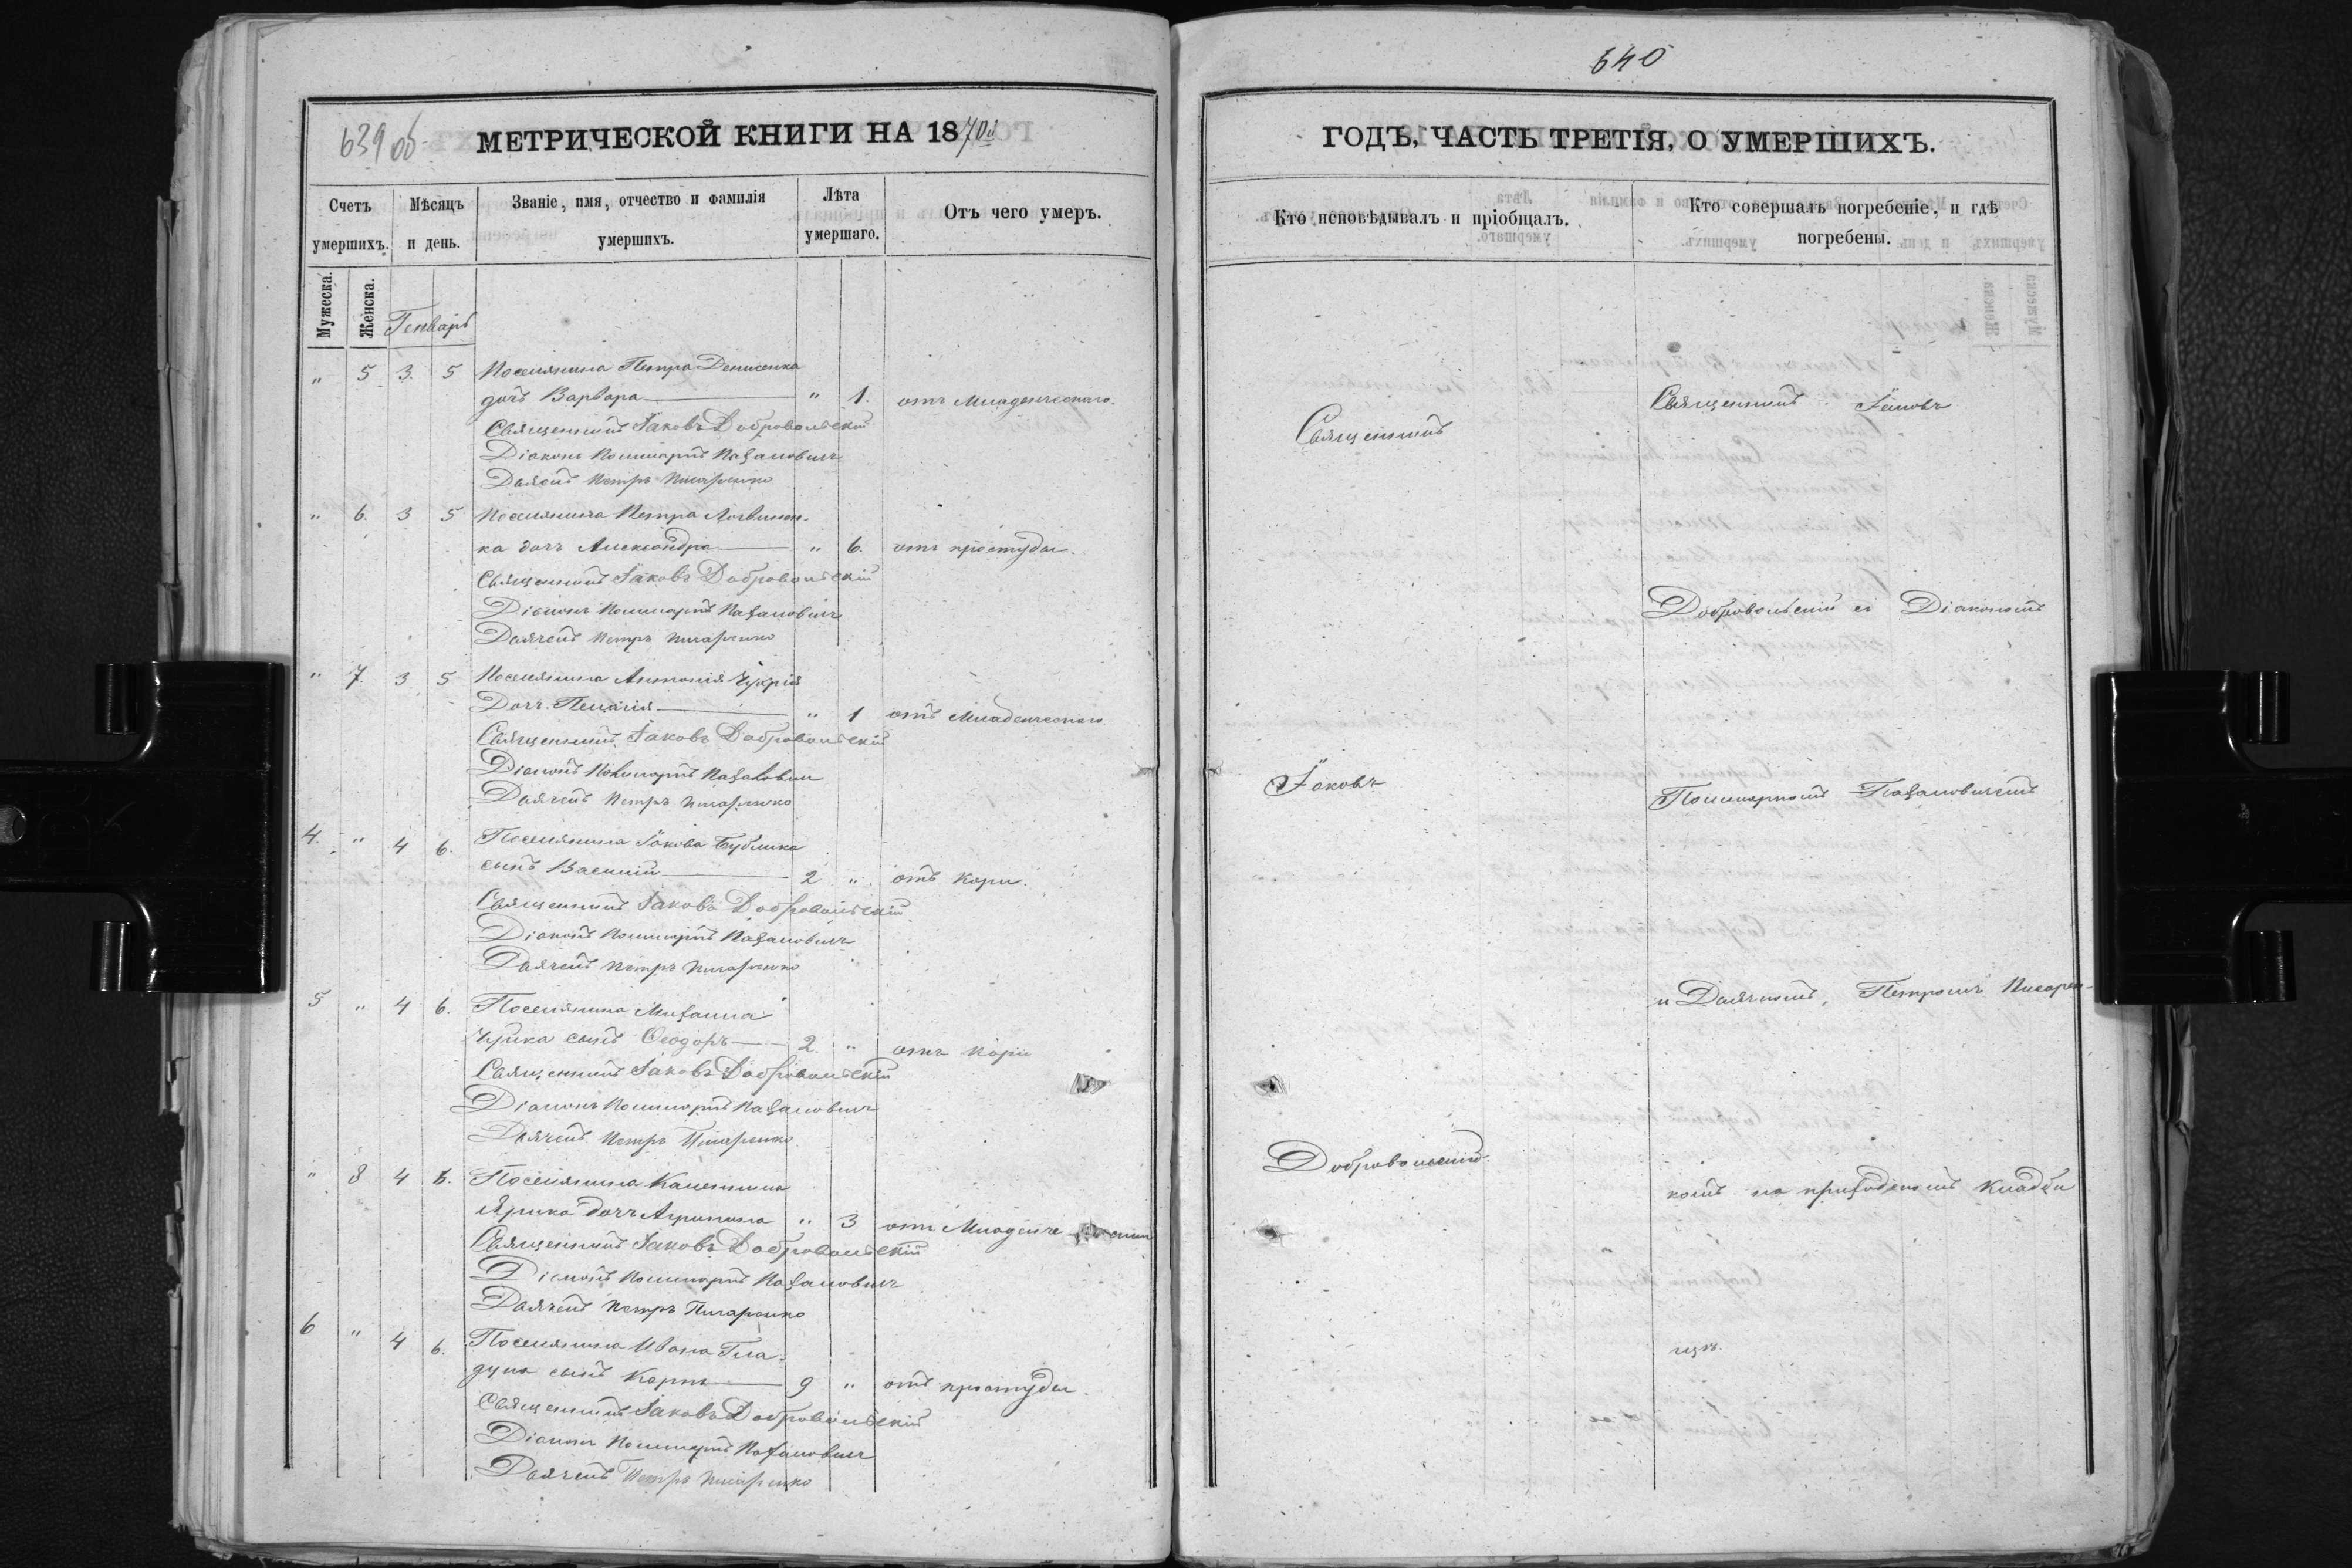 639 об
МЕТРИЧЕСКОЙ КНИГИ НА 1870й
Счетъ умершихъ.
Мѣсяцъ и день.
Званіе, имя, отчество и фамилія умершихъ.
Лѣта умершаго.
Отъ чего умеръ.
Мужеска.
Женска.
Генварь
" 5 3. 5 Поселянина Петра Денисенка
дочь Варвара " 1. отъ младенческаго.
Священникъ Іаковъ Добровольскій
Діаконъ Поликарпъ
Дьячекъ Петръ Писаренко
" 6. 3 5 Поселянина Петра Логвинен-
ка дочь Александра " 6. отъ простуды.
Священникъ Іаковъ Добровольскій
Діаконъ Поликарпъ
Дьячекъ Петръ Писаренко
" 7. 3 5 Поселянина Антонія
Дочь Пелагія " 1 отъ младенческаго
Священникъ Іаковъ Добровольскій
Діаконъ Поликарпъ
Дьячекъ Петръ Писаренко
4. " 4 6. Поселянина Іакова Бублика
сынъ Василій 2 " отъ кори.
Священникъ Іаковъ Добровольскій
Діаконъ Поликарпъ
Дьячекъ Петръ Писаренко
5 " 4 6. Поселянина Михаила
сынъ Ѳеодоръ 2. " отъ кори
Священникъ Іаковъ Добровольскій
Діаконъ Поликарпъ
Дьячекъ Петръ Писаренко
" 8 4 6. Поселянина
дочь Агрипина " 3 отъ
Священникъ Іаковъ Добровольскій
Діаконъ Поликарпъ
Дьячекъ Петръ Писаренко
6 " 4 6. Поселянина Ивана Гла-
дуна сынъ Карпъ 9 " отъ простуды.
Священникъ Іаковъ Добровольскій
Діаконъ Поликарпъ
Дьячекъ Петръ Писаренко
640
ГОДЪ, ЧАСТЬ ТРЕТІЯ, О УМЕРШИХЪ.
Кто исповѣдывалъ и пріобщалъ.
Кто совершалъ погребеніе, и гдѣ
погребены.
Священникъ
Іаковъ
Добровольскій
Священникъ Іаковъ
Добровольскій съ Діакономъ
Поликарпомъ
и Дьячкомъ, Петромъ Писарен-
комъ на приходскомъ кладби
щѣ.